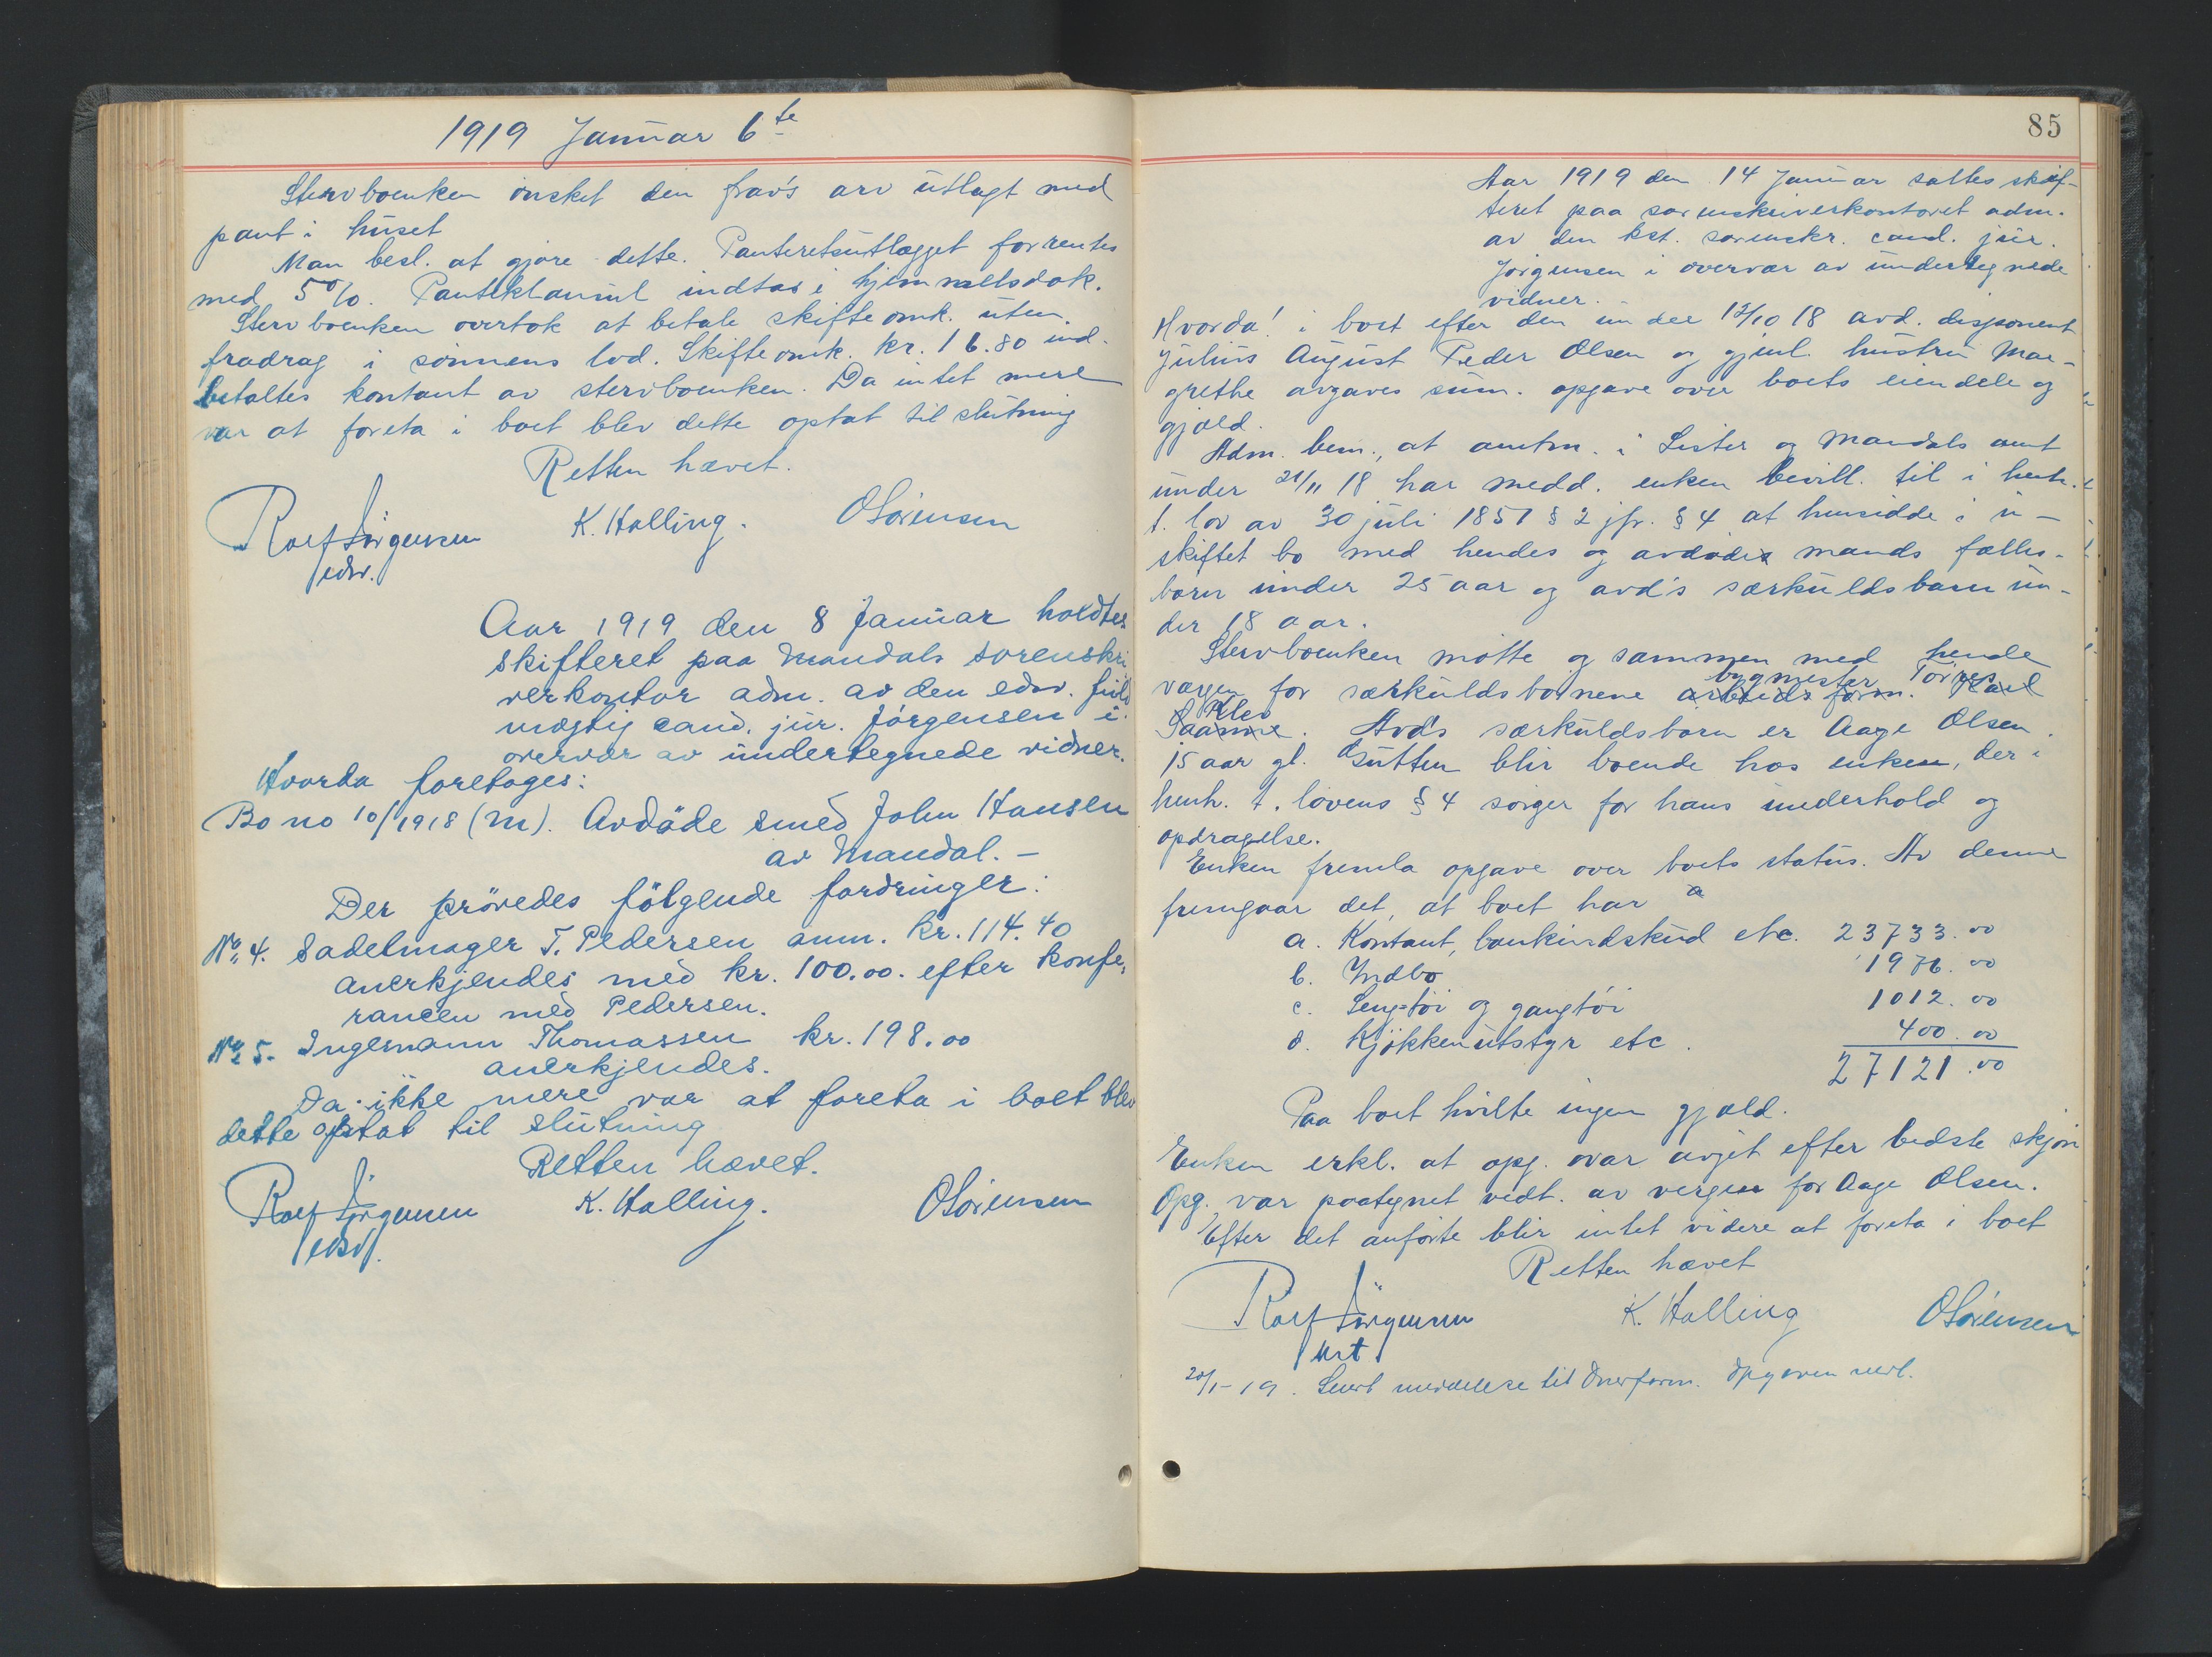 1919 Januar 6te
Stervboenken önsket den frav's arv utlagt med
pant i huset
Man besl. at gjøre dette. Panteretsutlægget forrentes
med 5%. Panteklausul indtas i hjemmelsdok.
Stervboenken overtok at betale skifteomk. uten
fradrag i sönnens lod. Skifteomk. kr. 16.80 ind-
betaltes kontant av stervboenken. Da intet mere
var at foreta i boet blev dette optat til slutning
Retten hævet.
Rolf Jörgensen K. Halling. O Sörensen
edsv.
Aar 1919 den 8 Januar holdtes
skifteret paa Mandals sorenskri
verkontor adm. av den edsv. fuld
mægtig cand. jur. Jörgensen i
overvær av undertegnede vidner.
Hvorda foretoges:
Bo no 10/1918 (M). Avdöde smed John Hansen
av Mandal. –
Der prövedes fölgende fordringer:
No 4. Sadelmager T. Pedersen anm. kr. 114.40
anerkjendes med kr. 100.00. efter konfe,
rancen med Pedersen.
No 5. Ingemann Thomassen kr. 198.00
anerkjendes.
Da ikke mere var at foreta i boet blev
dette optat til slutning
Retten hævet.
Rolf Jörgensen K. Halling. O Sörensen
edsv.
85
Aar 1919 den 14 Januar sattes skif-
teret paa sorenskriverkontoret adm.
av den kst. sorenskr. cand. jur.
Jörgensen i overvær av undertegnede
vidner.
Hvorda! i boet efter den under 12/10 18 avd. disponent
Julius August Peder Olsen og gjenl. hustru Mar-
grethe avgaves sum. opgave over boets eiendele og
gjæld.
Adm. bem., at amtm. i Lister og Mandals amt
under 21/11 18 har medd. enken bevill. til i henh.
t. lov av 30 juli 1851 § 2 jfr. § 4 at hensidde i u-
skiftet bo med hendes og avdödes mands fælles-
barn under 25 aar og avd's særkuldsbarn un-
der 18 aar.
Stervboenken mötte og sammen med hende
bygmester Törres
værgen for særkuldsbornene arbeidsform. Karl
Klev
Saanne. Avd's særkuldsbarn er Aage Olsen,
15 aar gl. Gutten blir boende hos enken, der i
henh. t. lovens § 4 sörger for hans underhold og
opdragelse.
Enken fremla opgave over boets status. Av denne
fremgaar det, at boet har a
a. Kontant, bankindskud etc. 23733.00
b. Indbo 1976.00
c. Sengtöi og gangtöi 1012.00
d. Kjökkenutstyr etc. 400.00
27121.00
Paa boet hvilte ingen gjæld.
Enken erkl. at opg. var avgit efter bedste skjön
Opg. var paategnet vedt. av vergen for Aage Olsen.
Efter det anförte blir intet videre at foreta i boet
Retten hævet
Rolf Jörgensen K. Halling O Sörensen
kst
20/1-19. Sendt meddelelse til overform. Opgaven vedl.